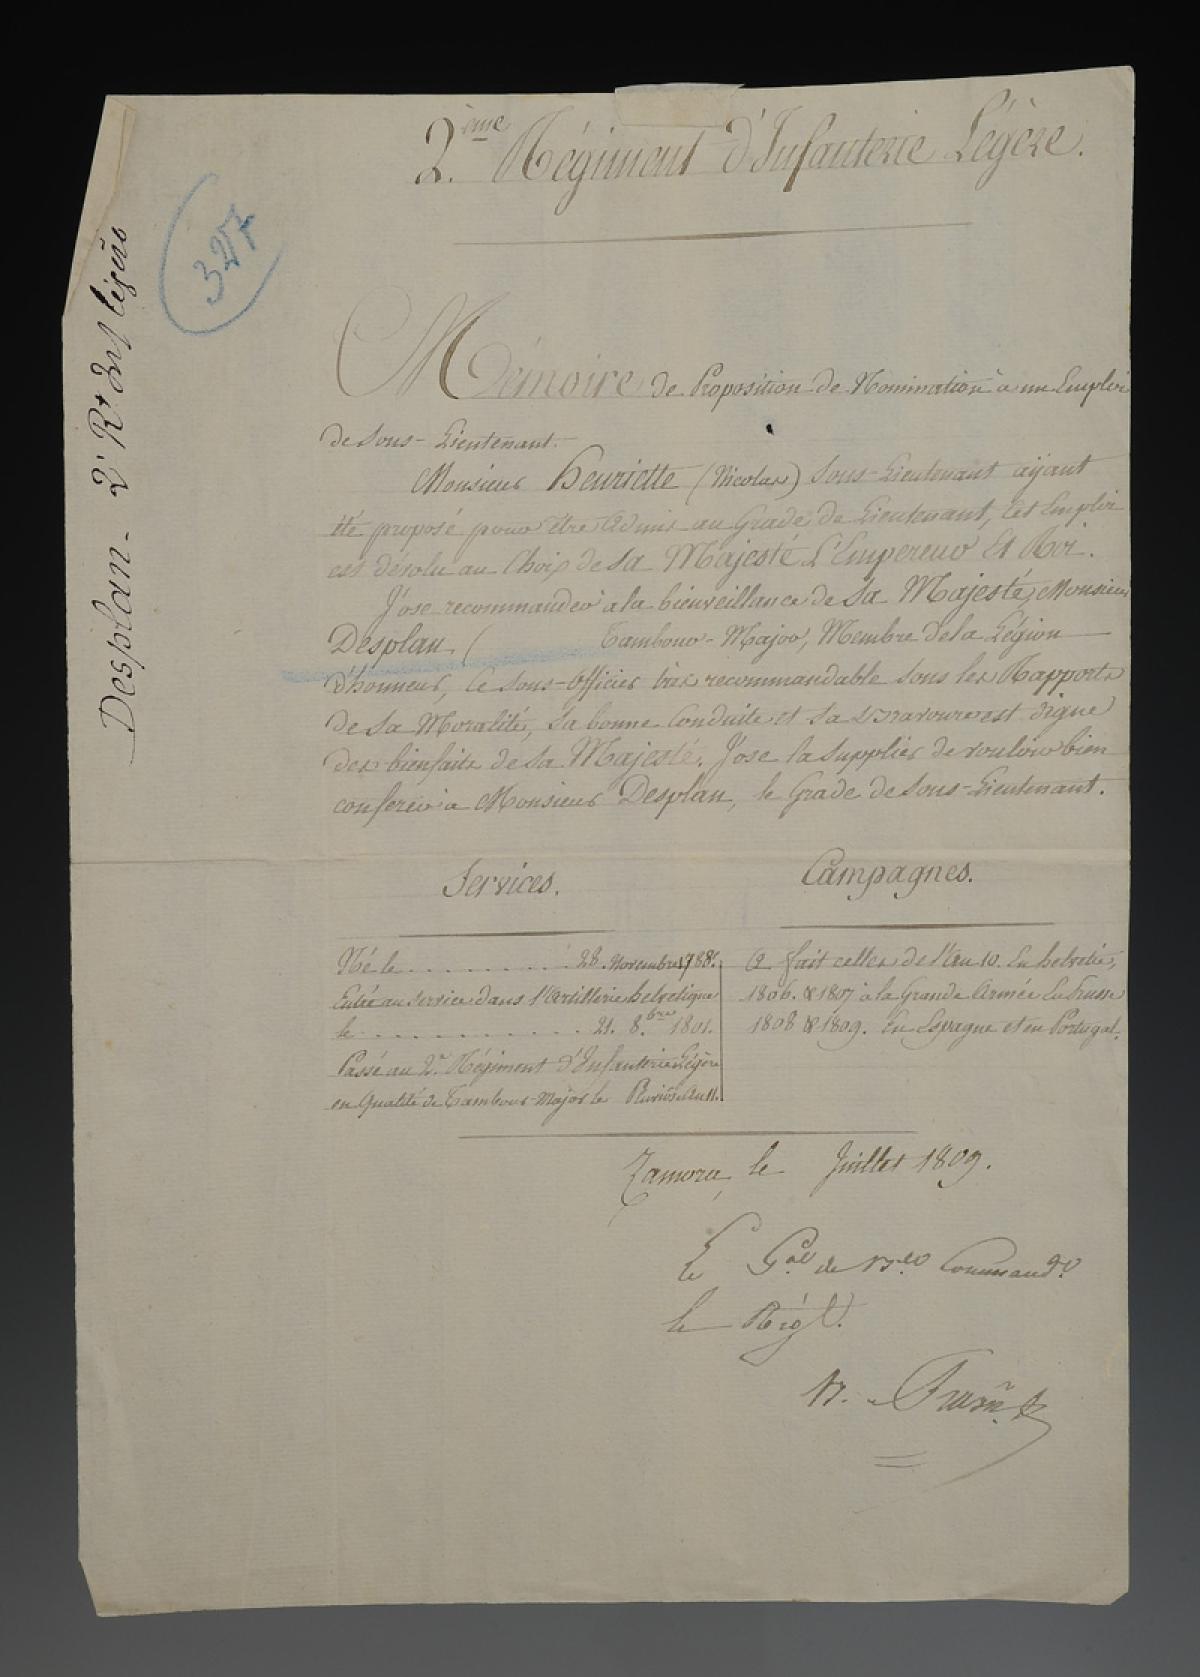 2.ème Régiment d'Infanterie Légère.
327
Desplan - 2e Rt d'inf légère
Mémoire de Proposition de Nomination à un Emploi
de Sous-Lieutenant.
Monsieur Henriette (Nicolas) Sous-Lieutenant ayant
été proposé pour être Admis au Grade de Lieutenant, Cet Emploi
est dévolu au Choix de Sa Majesté L'Empereur Et Roi.
J'ose recommander à la bienveillance de Sa Majesté, Monsieur
Desplan (      Tambour-Major, Membre de la Légion
d'honneur, Ce Sous-Officier très recommandable sous les Rapports
de Sa Moralité, Sa bonne Conduite et Sa Bravoure est digne
des bienfaits de Sa Majesté. J'ose la Supplier de vouloir bien
conferer à Monsieur Desplan, le Grade de Sous-Lieutenant.
Services.
Né le .......... 28. Novembre 1788.
Entré au Service dans l'Artillerie helvetique
le .......... 21. 8.bre 1801.
Passé au 2.e Régiment d'Infanterie Légère
en Qualité de Tambour-Major le Pluviôse An 11.
Campagnes.
A fait celles de l'An 10. En helvetie,
1806. & 1807 à la Grande Armée En Prusse
1808 & 1809. En Espagne et en Portugal.
Zamora, le Juillet 1809.
Le Gal de Commandt
le Régt.